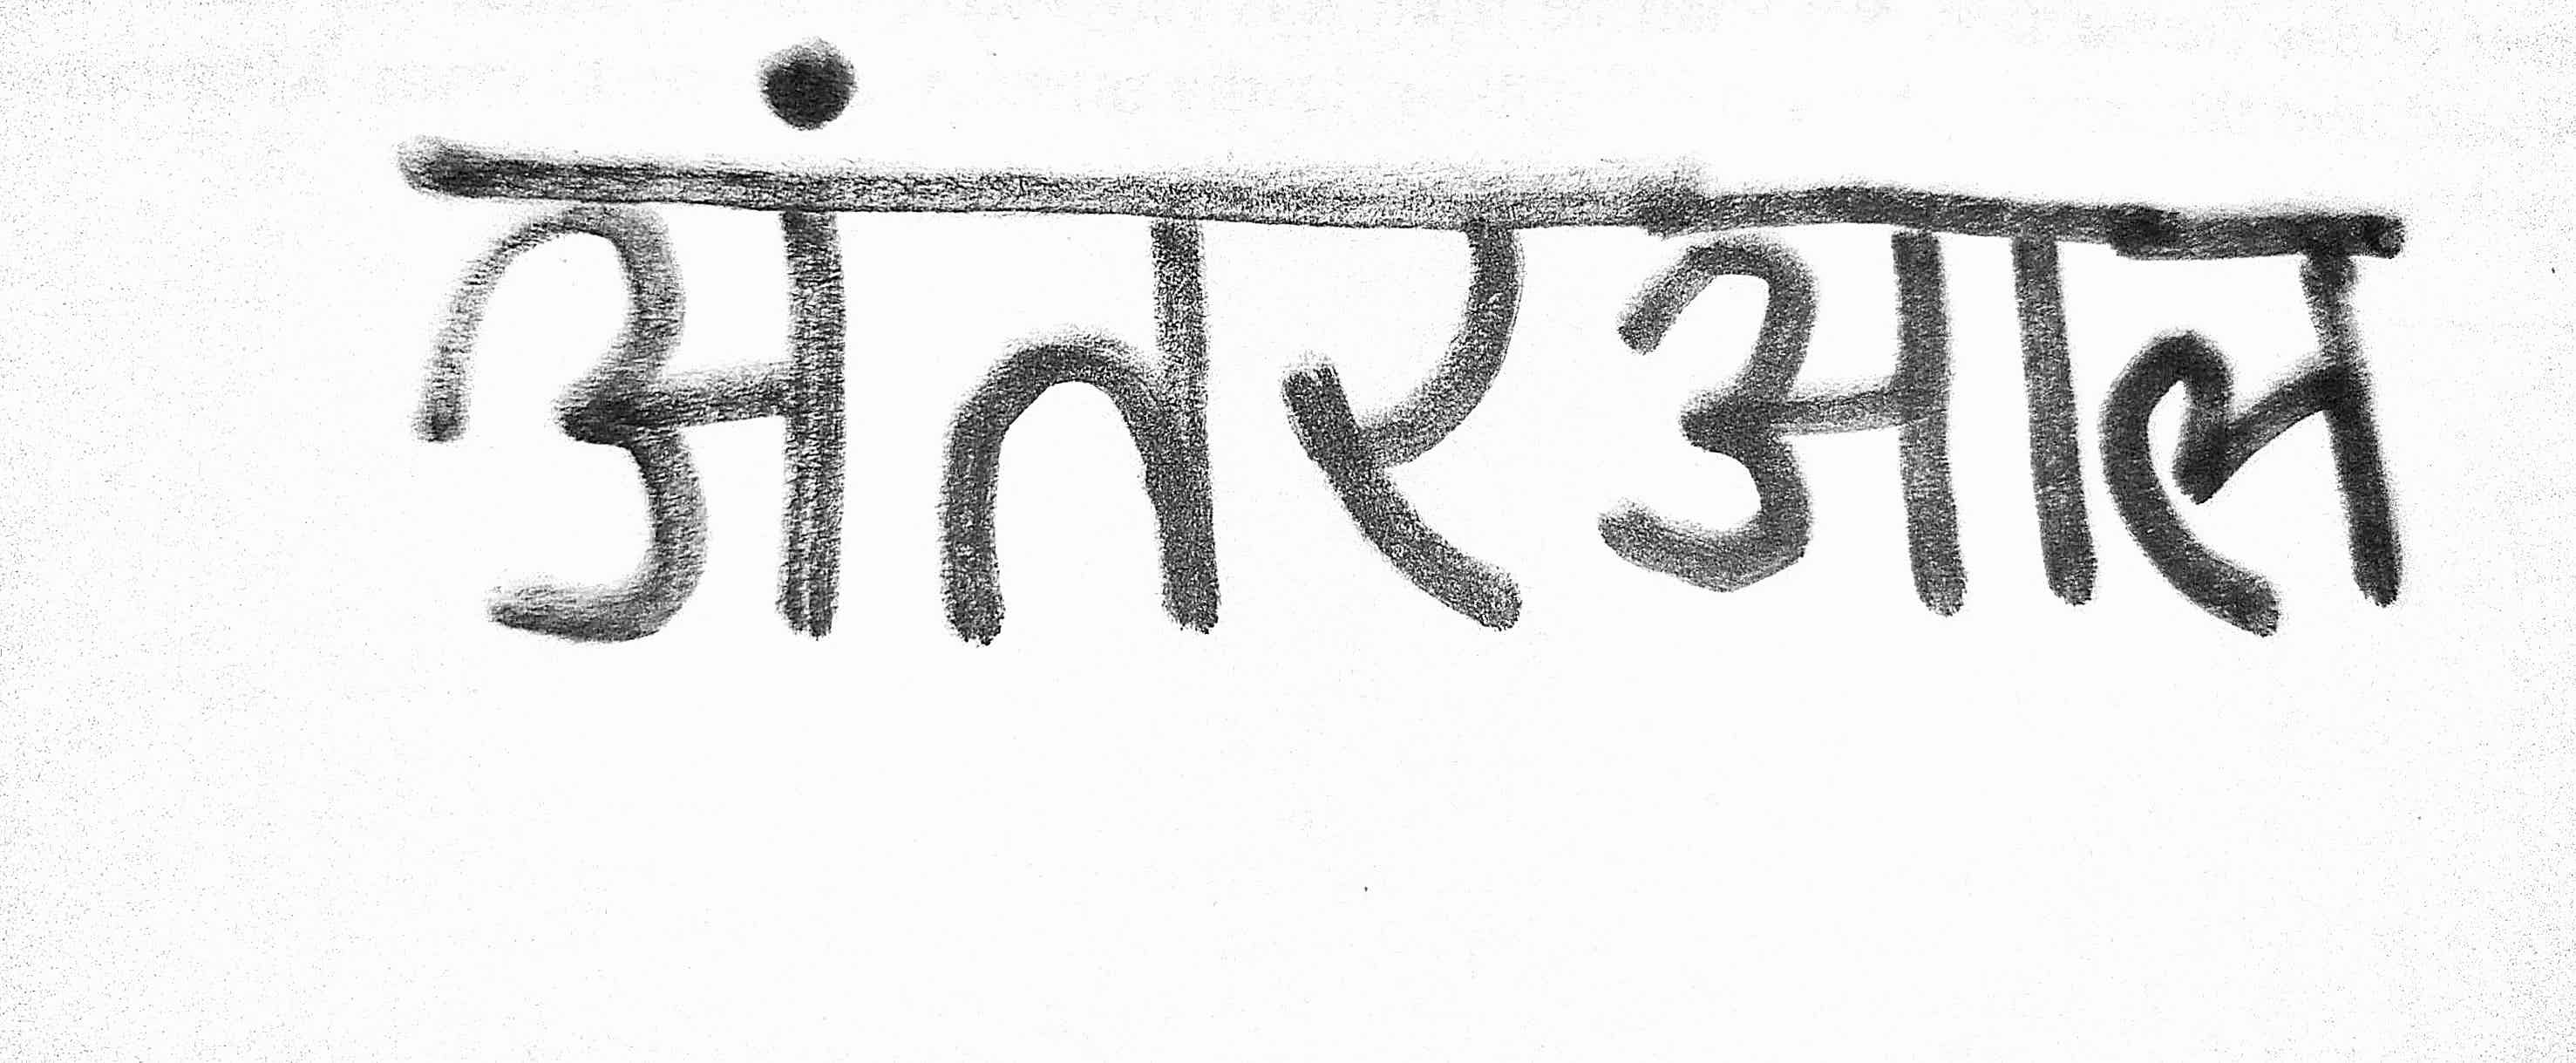 अंतरआल